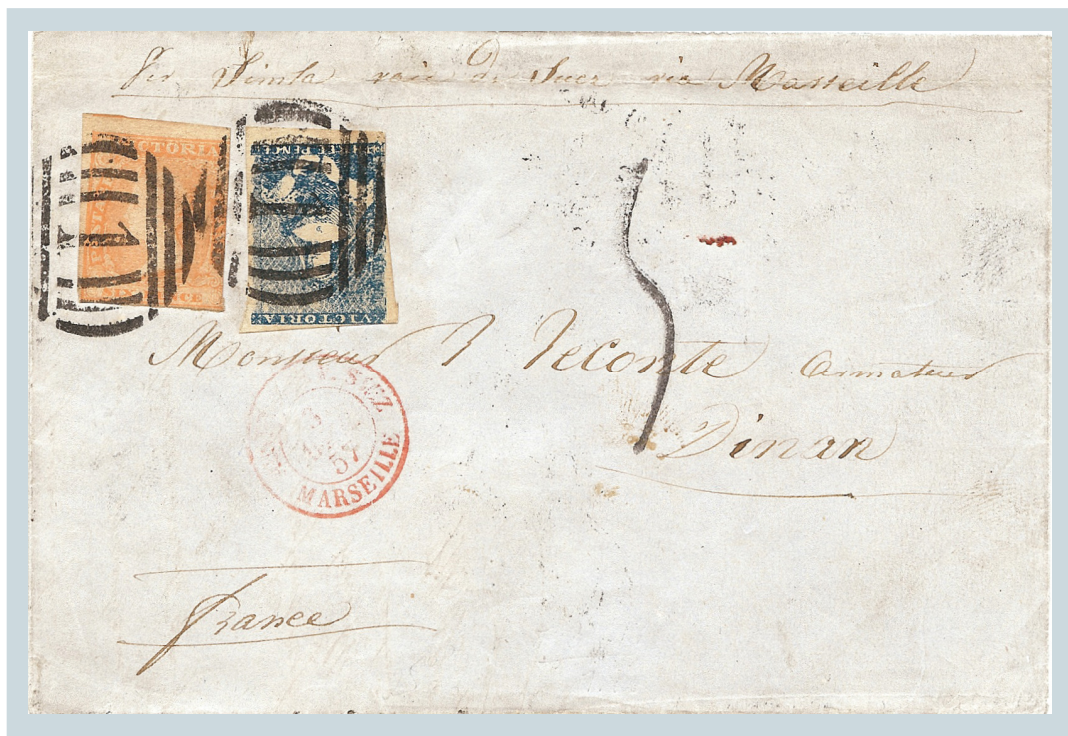 Per Simla voie de Suez via Marseille
VICTORIA
PENCE
VICTORIA
1
1
5
Monsieur J Leconte armateur
Dinan
SUEZ
57
MARSEILLE
France